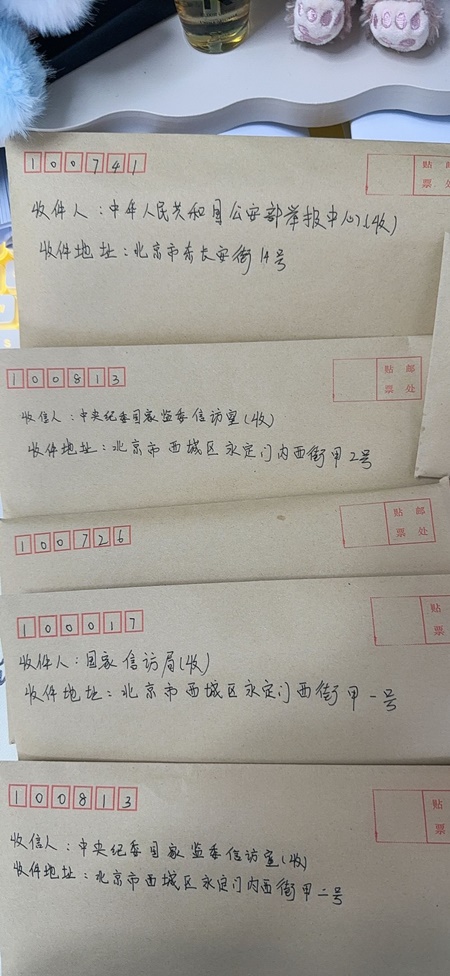 100741
贴 邮
票 处
收件人：中华人民共和国公安部举报中心(收)
收件地址：北京市东长安街14号
100813
贴 邮
票 处
收信人：中央纪委国家监委信访室(收)
收件地址：北京市西城区永定门内西街甲2号
100726
贴 邮
票 处
100017
贴
票
收件人：国家信访局(收)
收件地址：北京市西城区永定门西街甲一号
100813
贴
票
收信人：中央纪委国家监委信访室(收)
收件地址：北京市西城区永定门内西街甲二号